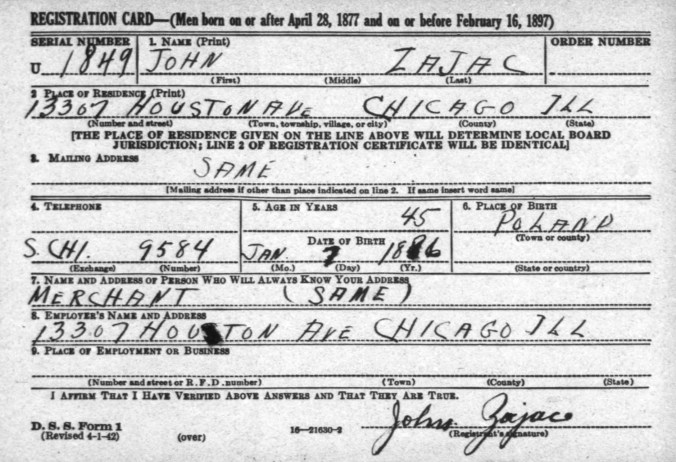 REGISTRATION CARD—(Men born on or after April 28, 1877 and on or before February 16, 1897)
SERIAL NUMBER 1. NAME (Print) ORDER NUMBER
U 1849 JOHN ZAJAC
(First) (Middle) (Last)
2 PLACE OF RESIDENCE (Print)
13307 HOUSTON AVE CHICAGO ILL
(Number and street) (Town, township, village, or city) (County) (State)
[THE PLACE OF RESIDENCE GIVEN ON THE LINE ABOVE WILL DETERMINE LOCAL BOARD
JURISDICTION; LINE 2 OF REGISTRATION CERTIFICATE WILL BE IDENTICAL]
3. MAILING ADDRESS
SAME
[Mailing address if other than place indicated on line 2. If same insert word same]
4. TELEPHONE 5. AGE IN YEARS 6. PLACE OF BIRTH
45 POLAND
DATE OF BIRTH (Town or county)
S. CHI. 9584 JAN. 7
(Exchange) (Number) (Mo.) (Day) (Yr.) (State or country)
7. NAME AND ADDRESS OF PERSON WHO WILL ALWAYS KNOW YOUR ADDRESS
MERCHANT (SAME)
8. EMPLOYER'S NAME AND ADDRESS
13307 HOUSTON AVE CHICAGO ILL
9. PLACE OF EMPLOYMENT OR BUSINESS
(Number and street or R. F. D. number) (Town) (County) (State)
I AFFIRM THAT I HAVE VERIFIED ABOVE ANSWERS AND THAT THEY ARE TRUE.
D. S. S. Form 1 John Zajac
(Revised 4-1-42) (over) 16—21630-2 (Registrant's signature)